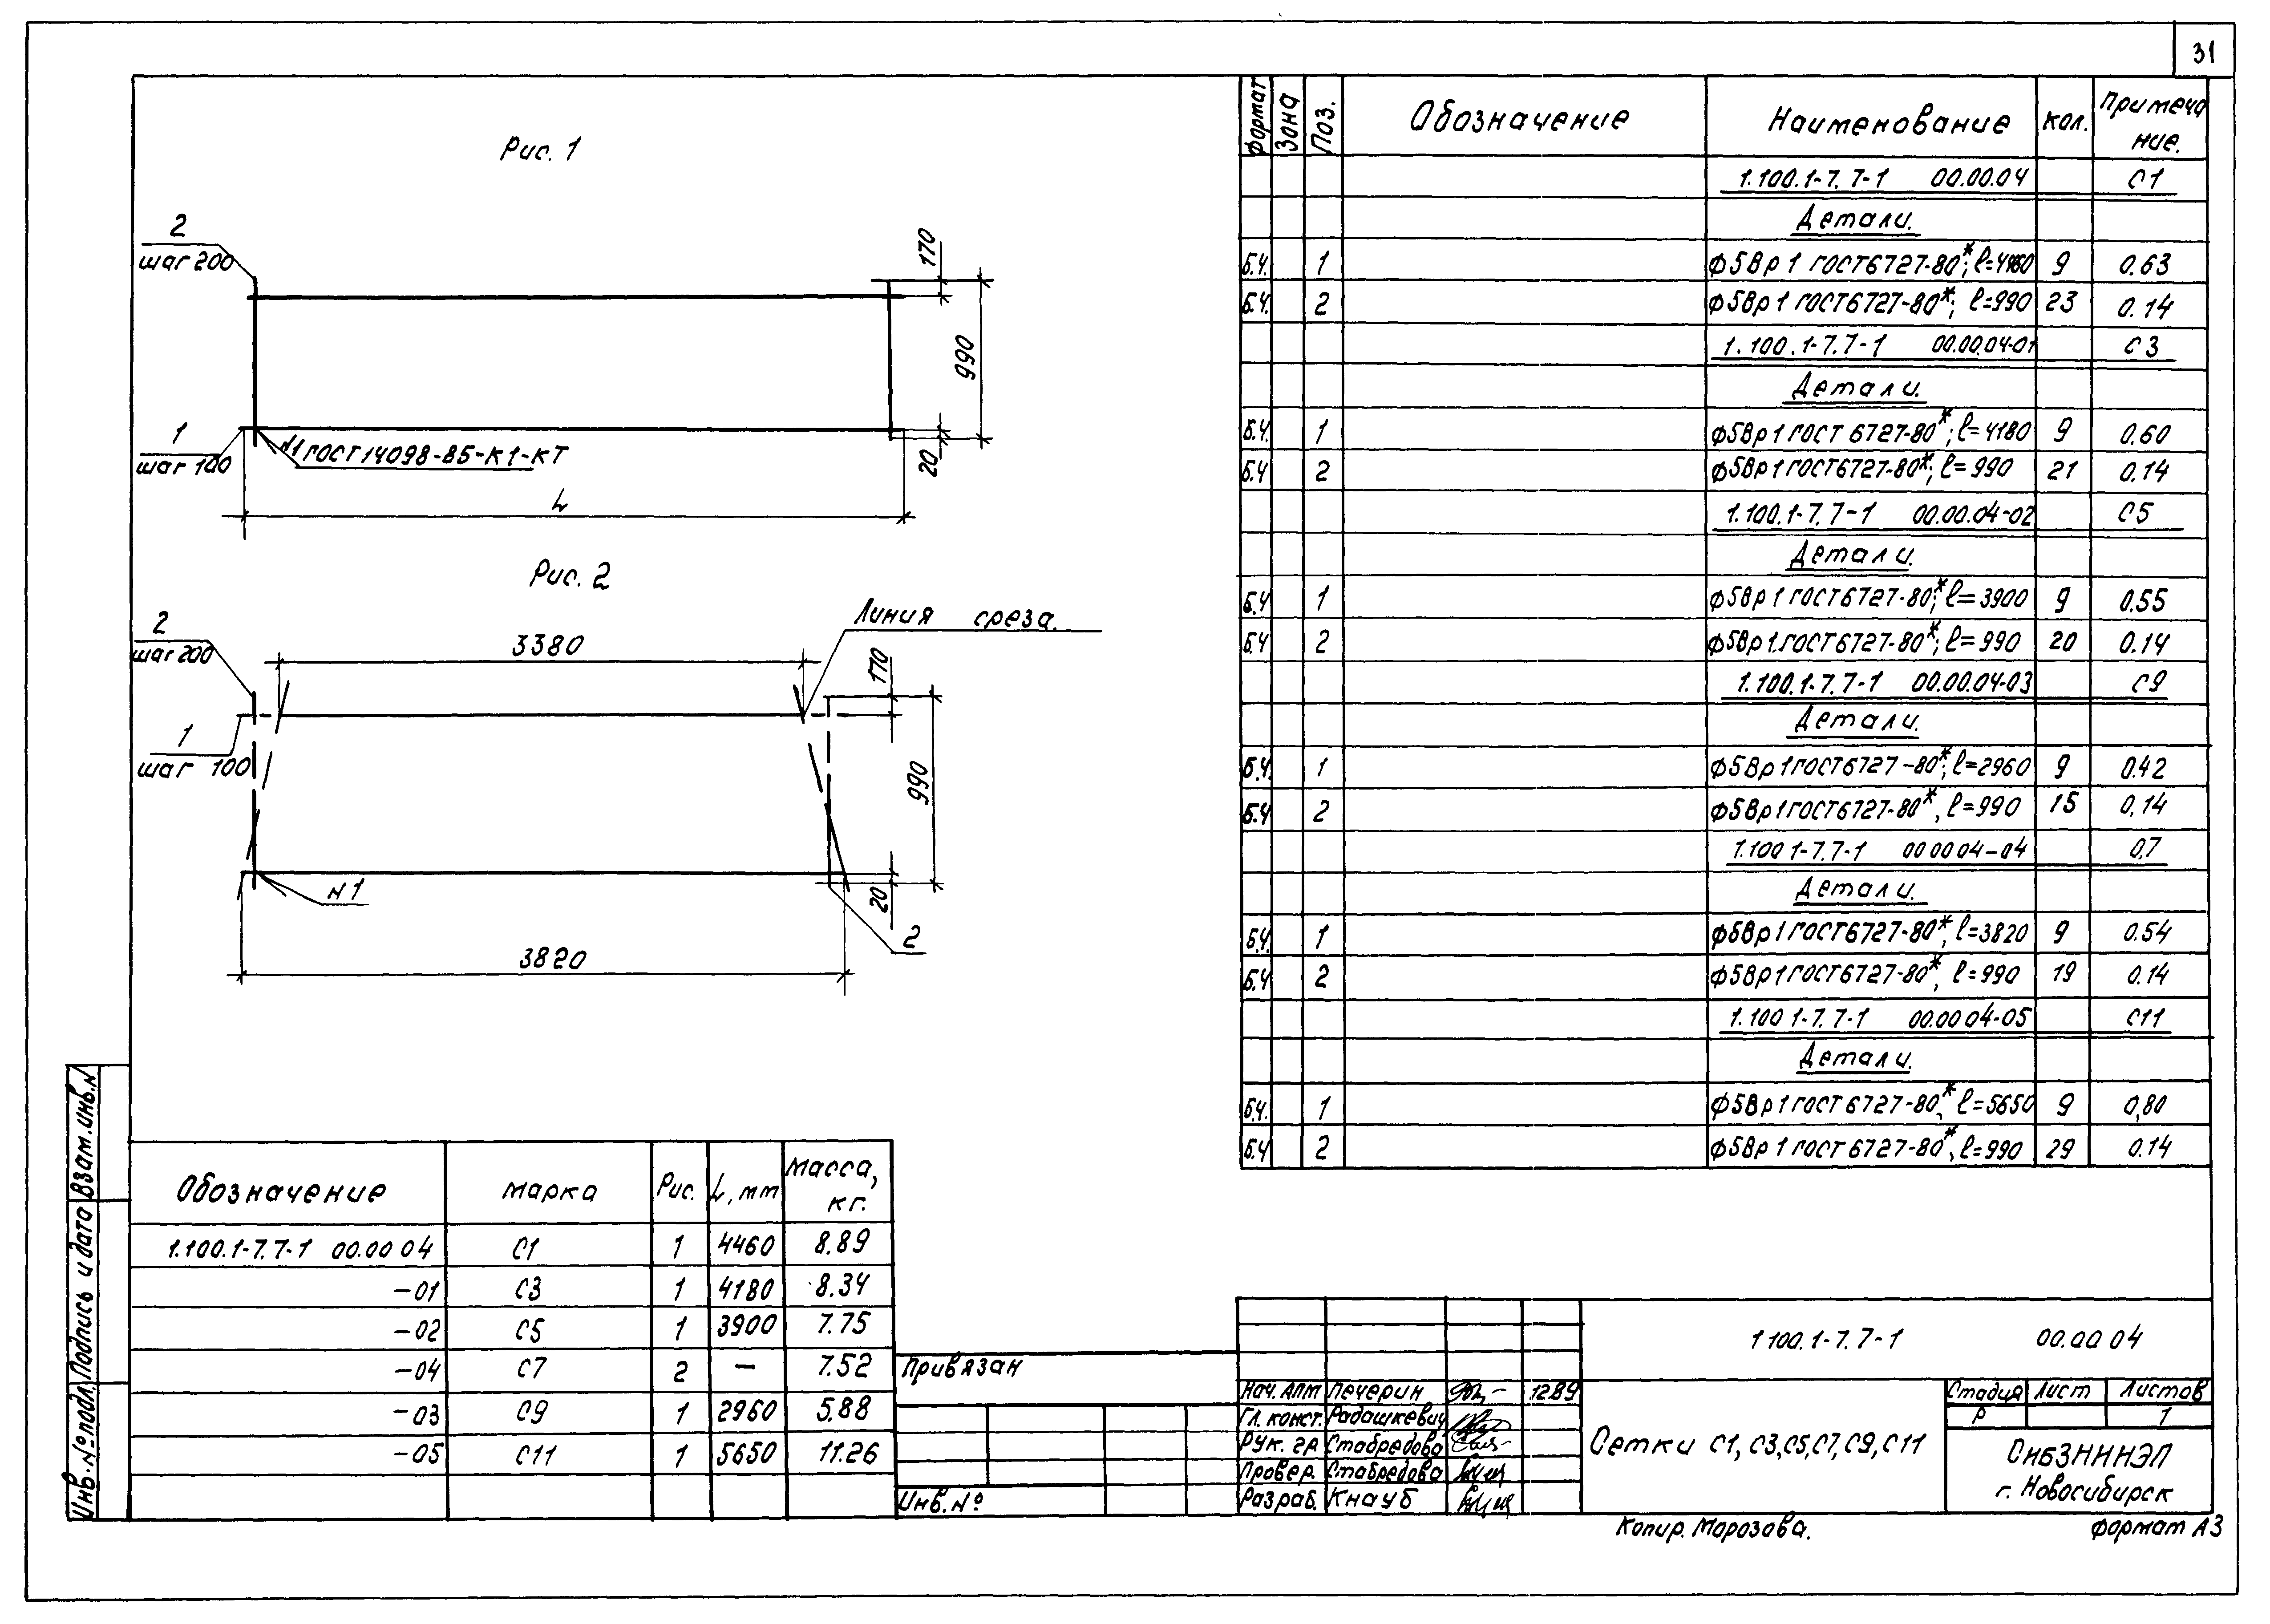 31
Рис. 1
2
шаг 200
170
990
20
1
шаг 100
N1 ГОСТ 14098-85-К1-КТ
L
Рис. 2
Линия среза.
2
шаг 200
3380
170
1
шаг 100
990
20
N 1
2
3820
Формат Зона Поз. Обозначение Наименование Кол. Примеча
ние.
1.100.1-7.7-1 00.00.04 С1
Детали.
Б.Ч. 1 Ф5Вр1 ГОСТ6727-80*; ℓ=4460 9 0.63
Б.Ч. 2 Ф5Вр1 ГОСТ6727-80*; ℓ=990 23 0.14
1.100.1-7.7-1 00.00.04-01 С3
Детали.
Б.Ч. 1 Ф5Вр1 ГОСТ 6727-80*; ℓ=4180 9 0.60
Б.Ч 2 Ф5Вр1 ГОСТ6727-80*; ℓ=990 21 0.14
1.100.1-7.7-1 00.00.04-02 С5
Детали.
Б.Ч 1 Ф5Вр1 ГОСТ6727-80*; ℓ=3900 9 0.55
Б.Ч 2 Ф5Вр1.ГОСТ6727-80*; ℓ=990 20 0.14
1.100.1-7.7-1 00.00.04-03 С9
Детали.
Б.Ч. 1 Ф5Вр1 ГОСТ6727-80*; ℓ=2960 9 0.42
Б.Ч 2 Ф5Вр1 ГОСТ6727-80*, ℓ=990 15 0,14
1.100 1-7.7-1 00 00 04-04 0,7
Детали.
Б.Ч. 1 Ф5Вр1 ГОСТ6727-80*, ℓ=3820 9 0.54
Б.Ч 2 Ф5Вр1 ГОСТ6727-80*, ℓ=990 19 0.14
1.100 1-7.7-1 00.00 04-05 С11
Детали.
Б.Ч. 1 Ф5Вр1 ГОСТ 6727-80*, ℓ=5650 9 0,80
Б.Ч 2 Ф5Вр1 ГОСТ 6727-80*, ℓ=990 29 0.14
Обозначение Марка Рис. L, мм Масса,
кг.
1.100.1-7.7-1 00.00 04 С1 1 4460 8.89
-01 С3 1 4180 8.34
-02 С5 1 3900 7.75
-04 С7 2 — 7.52
-03 С9 1 2960 5.88
-05 С11 1 5650 11.26
Взам. инв. N
Подпись и дата
Инв. № подл.
Привязан
Инв. №
Нач. АПМ Печерин 12.89
Гл. конст. Радашкевич
Рук. гр Стабредова
Провер. Стабредова
Разраб. Кнауб
1 100.1-7.7-1 00.00 04
Сетки С1, С3, С5, С7, С9, С11
Стадия Лист Листов
Р 1
СибЗНИИЭП
г. Новосибирск
Копир. Морозова.
Формат А3